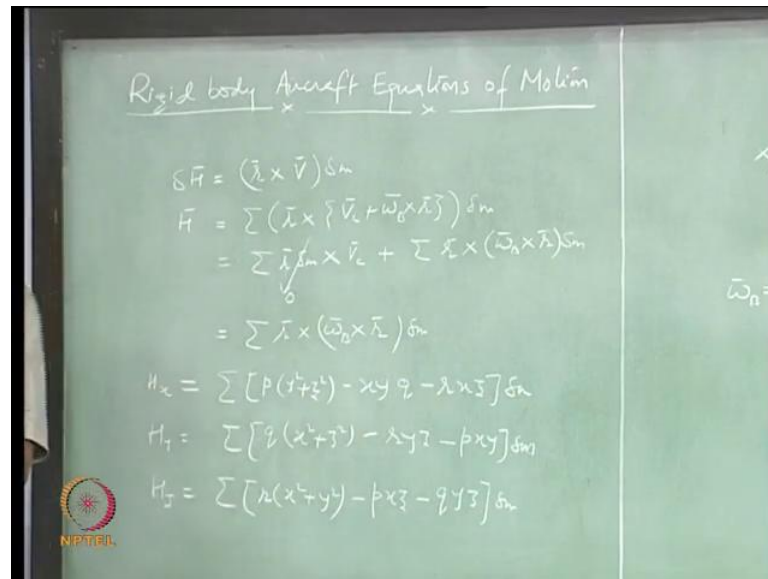 Rigid body Aircraft Equations of Motion
δH̄ = (r̄ × V̄) δm
H̄ = Σ (r̄ × {V̄c + ω̄B × r̄}) δm
= Σ r̄ δm × V̄c + Σ r̄ × (ω̄B × r̄) δm
0
= Σ r̄ × (ω̄B × r̄) δm
Hx = Σ [p(y² + z²) - xyq - rxz] δm
Hy = Σ [q(x² + z²) - ryz - pxy] δm
Hz = Σ [r(x² + y²) - pxz - qyz] δm
ω̄B =
NPTEL